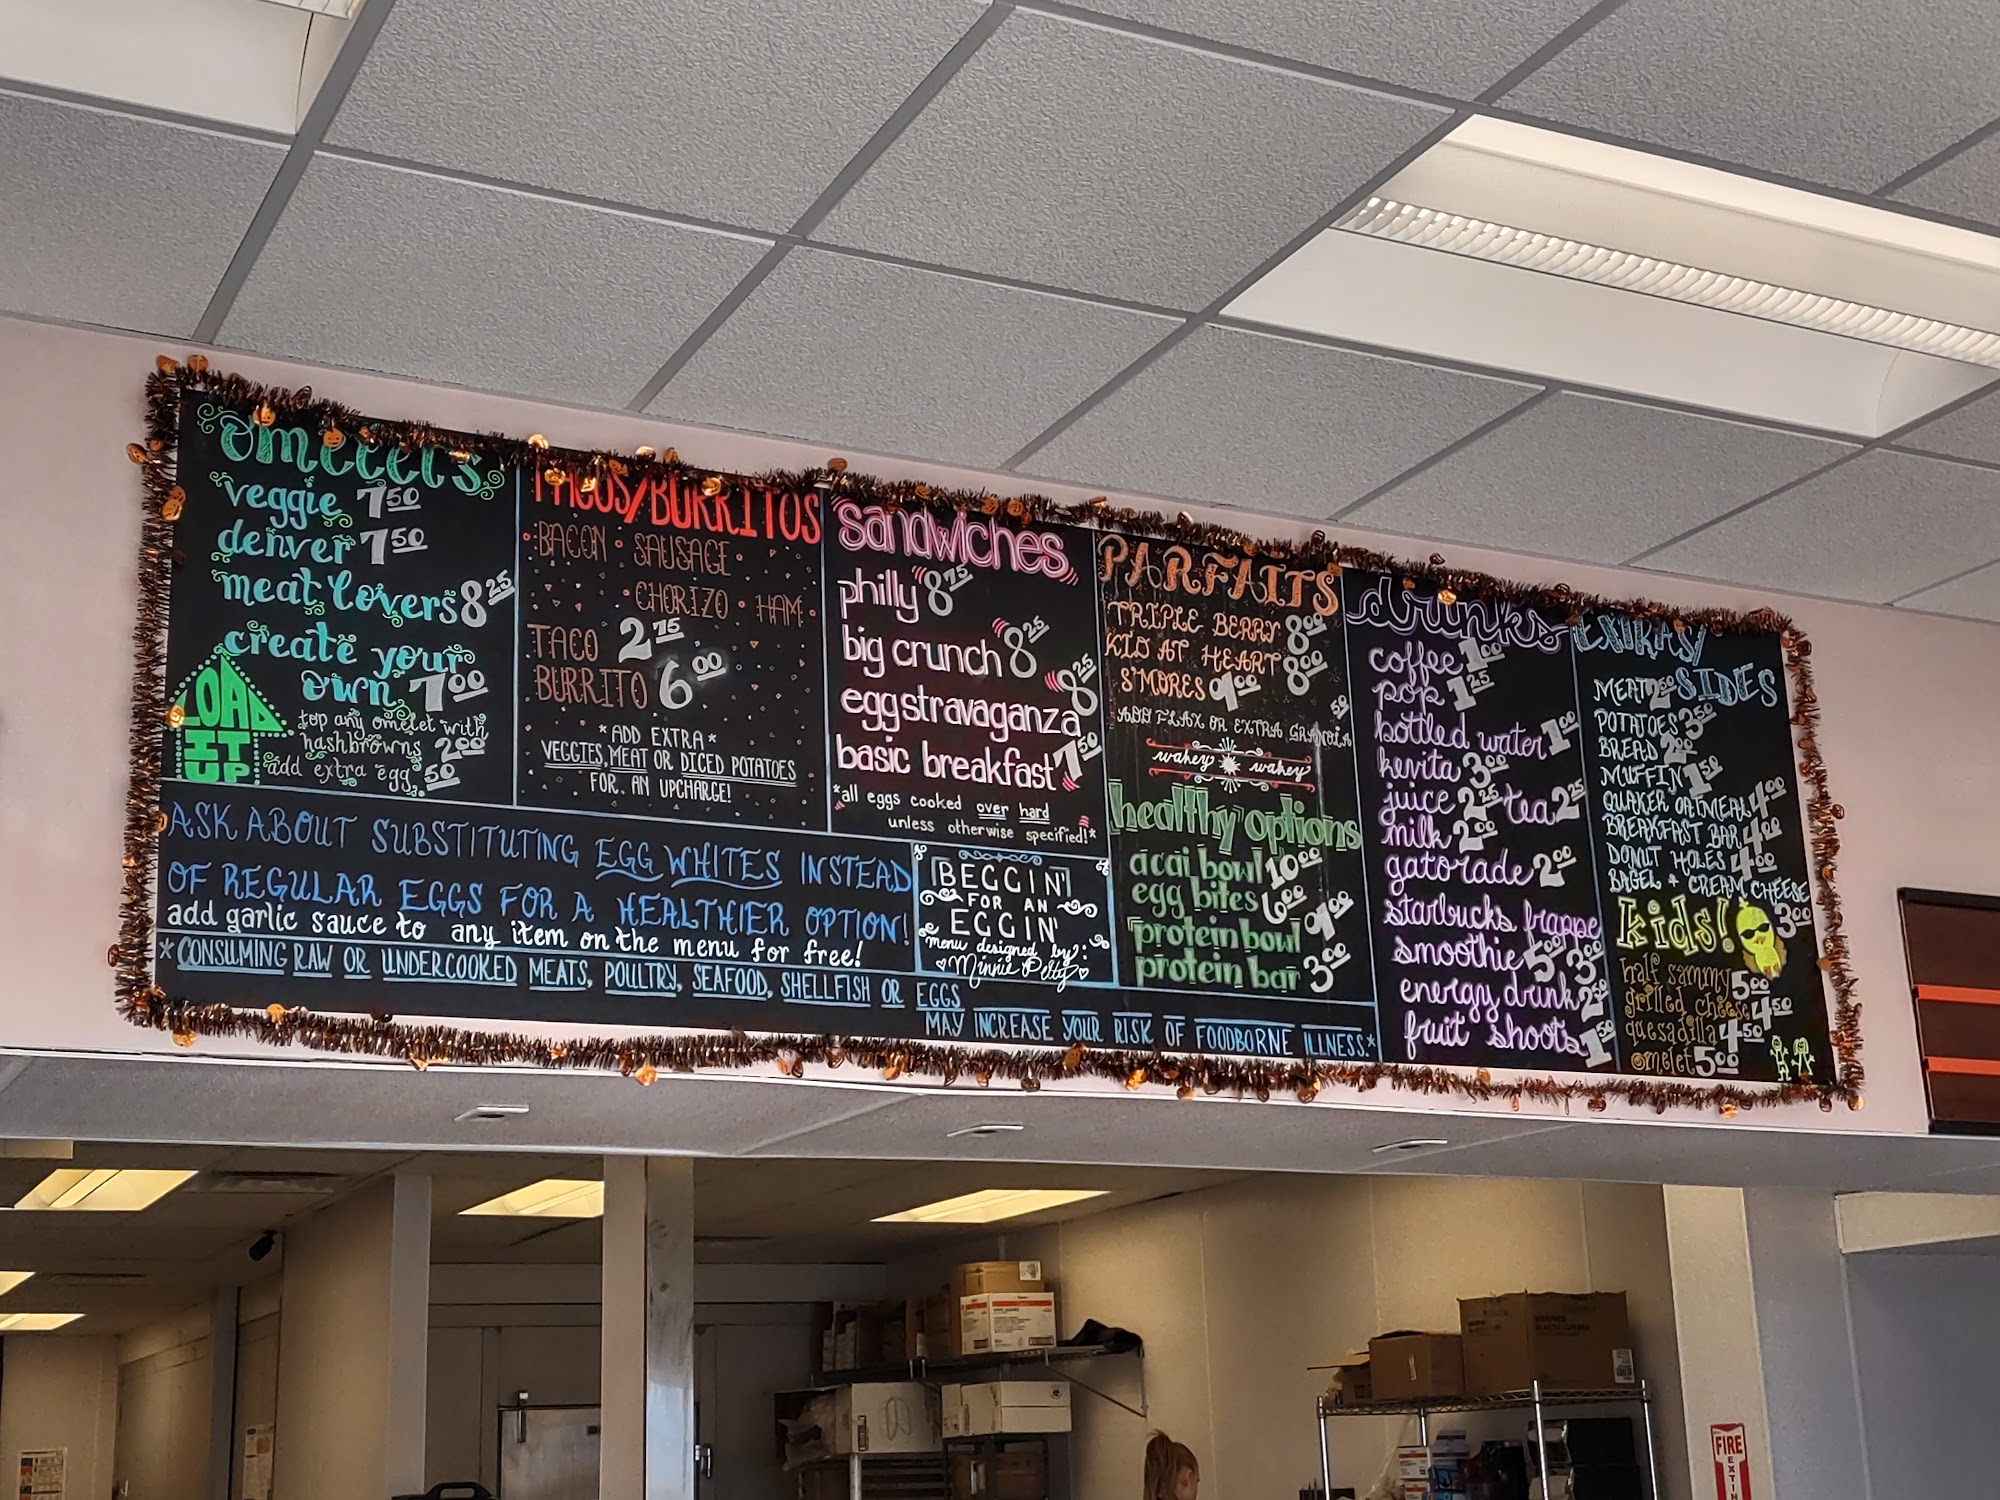 omelets
veggie 7.50
denver 7.50
meat lovers 8.25
create your
own 7.00
LOAD
IT
UP
top any omelet with
hashbrowns 2.00
add extra egg .50
TACOS/BURRITOS
BACON • SAUSAGE
• CHORIZO • HAM
TACO 2.75
BURRITO 6.00
*ADD EXTRA*
VEGGIES, MEAT OR DICED POTATOES
FOR AN UPCHARGE!
sandwiches
philly 8.75
big crunch 8.25
eggstravaganza 8.25
basic breakfast 7.50
*all eggs cooked over hard
unless otherwise specified!*
PARFAITS
TRIPLE BERRY 8.00
KID AT HEART 8.00
S'MORES 9.00
ADD FLAX OR EXTRA GRANOLA .50
wakey wakey
healthy options
acai bowl 10.00
egg bites 6.00
protein bowl 9.00
protein bar 3.00
drinks
coffee 1.00
pop 1.25
bottled water 1.00
kevita 3.00
juice 2.25 tea 2.25
milk 2.00
gatorade 2.00
starbucks frappe 3.00
smoothie 5.00
energy drink 2.50
fruit shoots 1.50
EXTRAS/
SIDES
MEAT 2.50
POTATOES 3.50
BREAD 2.00
MUFFIN 1.50
QUAKER OATMEAL 4.00
BREAKFAST BAR 4.00
DONUT HOLES 4.00
BAGEL + CREAM CHEESE 3.00
kids!
half sammy 5.00
grilled cheese 4.50
quesadilla 4.50
omelet 5.00
ASK ABOUT SUBSTITUTING EGG WHITES INSTEAD
OF REGULAR EGGS FOR A HEALTHIER OPTION!
add garlic sauce to any item on the menu for free!
BEGGIN'
FOR AN
EGGIN'
menu designed by:
Minnie Petty
*CONSUMING RAW OR UNDERCOOKED MEATS, POULTRY, SEAFOOD, SHELLFISH OR EGGS
MAY INCREASE YOUR RISK OF FOODBORNE ILLNESS.*
FIRE